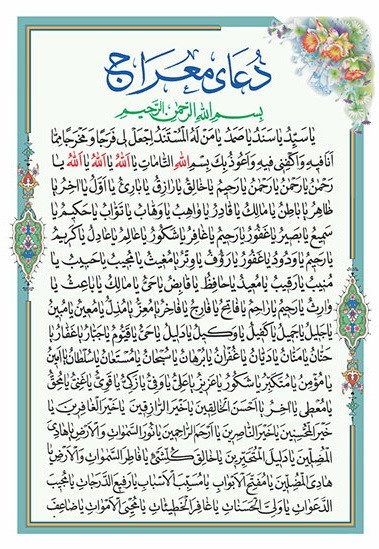 دُعای معراج
بِسمِ اللهِ الرَّحمنِ الرَّحیمِ
یا سَیِّدُ یا سَنَدُ یا صَمَدُ یا مَن لَهُ المُستَنَدُ اِجعَل لی فَرَجًا وَ مَخرَجًا مِمّا
اَنَا فیهِ وَ اکفِنی فیهِ وَ اَعُوذُ بِکَ بِسمِ اللهِ التّامّاتِ یا اَللهُ یا اَللهُ یا اَللهُ یا
رَحمنُ یا رَحمنُ یا رَحمنُ یا رَحیمُ یا خالِقُ یا رازِقُ یا بارِئُ یا اَوَّلُ یا اخِرُ یا
ظاهِرُ یا باطِنُ یا مالِکُ یا قادِرُ یا واهِبُ یا وَهّابُ یا تَوّابُ یا حَکیمُ یا
سَمیعُ یا بَصیرُ یا غَفُورُ یا رَحیمُ یا غافِرُ یا شَکُورُ یا عالِمُ یا عادِلُ یا کَریمُ
یا رَحیمُ یا وَدُودُ یا غَفُورُ یا رَؤُفُ یا وِترُ یا مُغیثُ یا مُجیبُ یا حَبیبُ یا
مُنیبُ یا رَقیبُ یا مُعیدُ یا حافِظُ یا قابِضُ یا حَیُّ یا مالِکُ یا باعِثُ یا
وارِثُ یا رَحیمُ یا راحِمُ یا فاتِحُ یا فارِجُ یا فاخِرُ یا مُعِزُّ یا مُذِلُّ یا مُعینُ یا مُبینُ
یا جَلیلُ یا جَمیلُ یا کَفیلُ یا وَکیلُ یا دَلیلُ یا حَیُّ یا قَیُّومُ یا جَبّارُ یا غَفّارُ یا
حَنّانُ یا مَنّانُ یا دَیّانُ یا غُفرانُ یا بُرهانُ یا سُبحانُ یا مُستَعانُ یا سُلطانُ یا اَمینُ
یا مُؤمِنُ یا مُتَکَبِّرُ یا شَکُورُ یا عَزیزُ یا عَلِیُّ یا وَفِیُّ یا زَکِیُّ یا قَوِیُّ یا غَنِیُّ یا مُحِقُّ
یا مُعطی یا اخِرُ یا اَحسَنَ الخالِقینَ یا خَیرَ الرّازِقینَ یا خَیرَ الغافِرینَ یا
خَیرَ المُحسِنینَ یا خَیرَ النّاصِرینَ یا اَرحَمَ الرّاحِمینَ یا نُورَ السَّمواتِ وَ الاَرضِ یا هادِیَ
المُضِلّینَ یا دَلیلَ المُتَحَیِّرینَ یا خالِقَ کُلِّ شَیءٍ یا فاطِرَ السَّمواتِ وَ الاَرضِ یا
هادِیَ المُضِلّینَ یا مُفَتِّحَ الاَبوابِ یا مُسَبِّبَ الاَسبابِ یا رَفیعَ الدَّرَجاتِ یا مُجیبَ
الدَّعَواتِ یا وَلِیَّ الحَسَناتِ یا غافِرَ الخَطیئاتِ یا مُحیِیَ الاَمواتِ یا ضاعِفَ